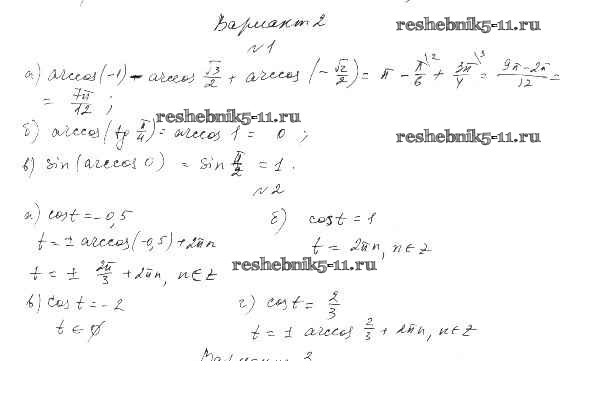 Вариант 2
reshebnik5-11.ru
№1
а) arccos(-1) - arccos √3/2 + arccos(-√2/2) = π - π/6 \2 + 3π/4 \3 = 9π-2π/12 =
= 7π/12 ;
reshebnik5-11.ru
б) arccos(tg π/4) = arccos 1 = 0 ;
reshebnik5-11.ru
в) sin(arccos 0) = sin π/2 = 1 .
№2
а) cost = -0,5
б) cost = 1
t = ± arccos(-0,5) + 2πn
t = 2πn, n∈Z
reshebnik5-11.ru
t = ± 2π/3 + 2πn, n∈Z
в) cos t = -2
г) cost = 2/3
t ∈ ∅
t = ± arccos 2/3 + 2πn, n∈Z